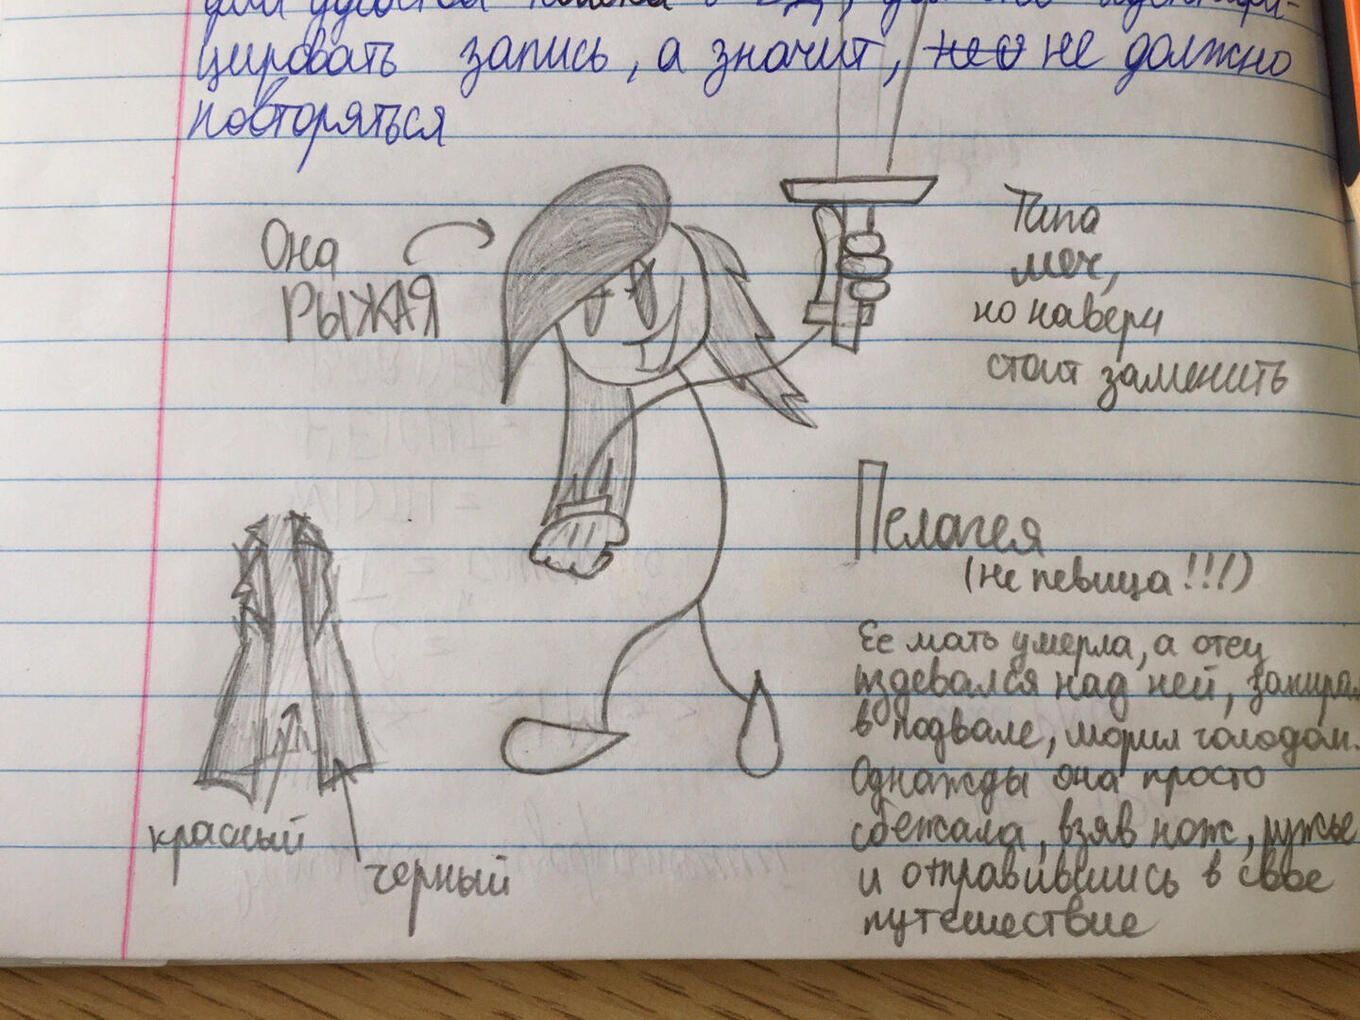 цировать запись, а значит, не должно
повторяться
Она
РЫЖАЯ
Типа
меч,
но наверн
стоит заменить
Пелагея
(не певица!!!)
Ее мать умерла, а отец
издевался над ней, запирал
в подвале, морил голодом.
Однажды она просто
сбежала, взяв нож, ружье
и отправившись в свое
путешествие
красный
черный